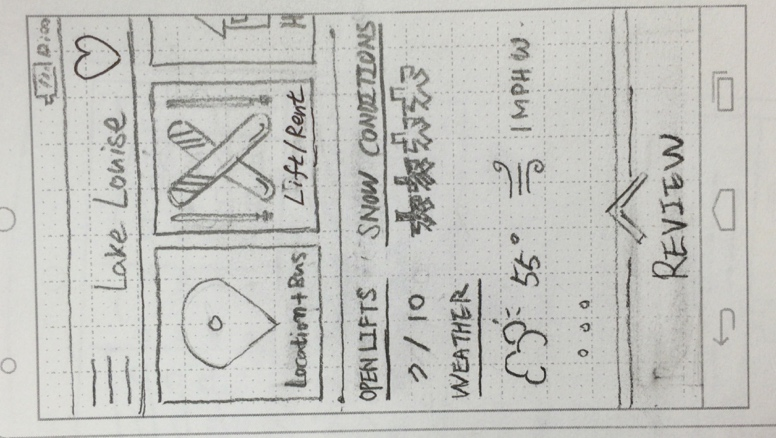 Lake Louise
Location+Bus
Lift/Rent
H
OPEN LIFTS
SNOW CONDITIONS
?/10
WEATHER
55°
1MPH W.
REVIEW